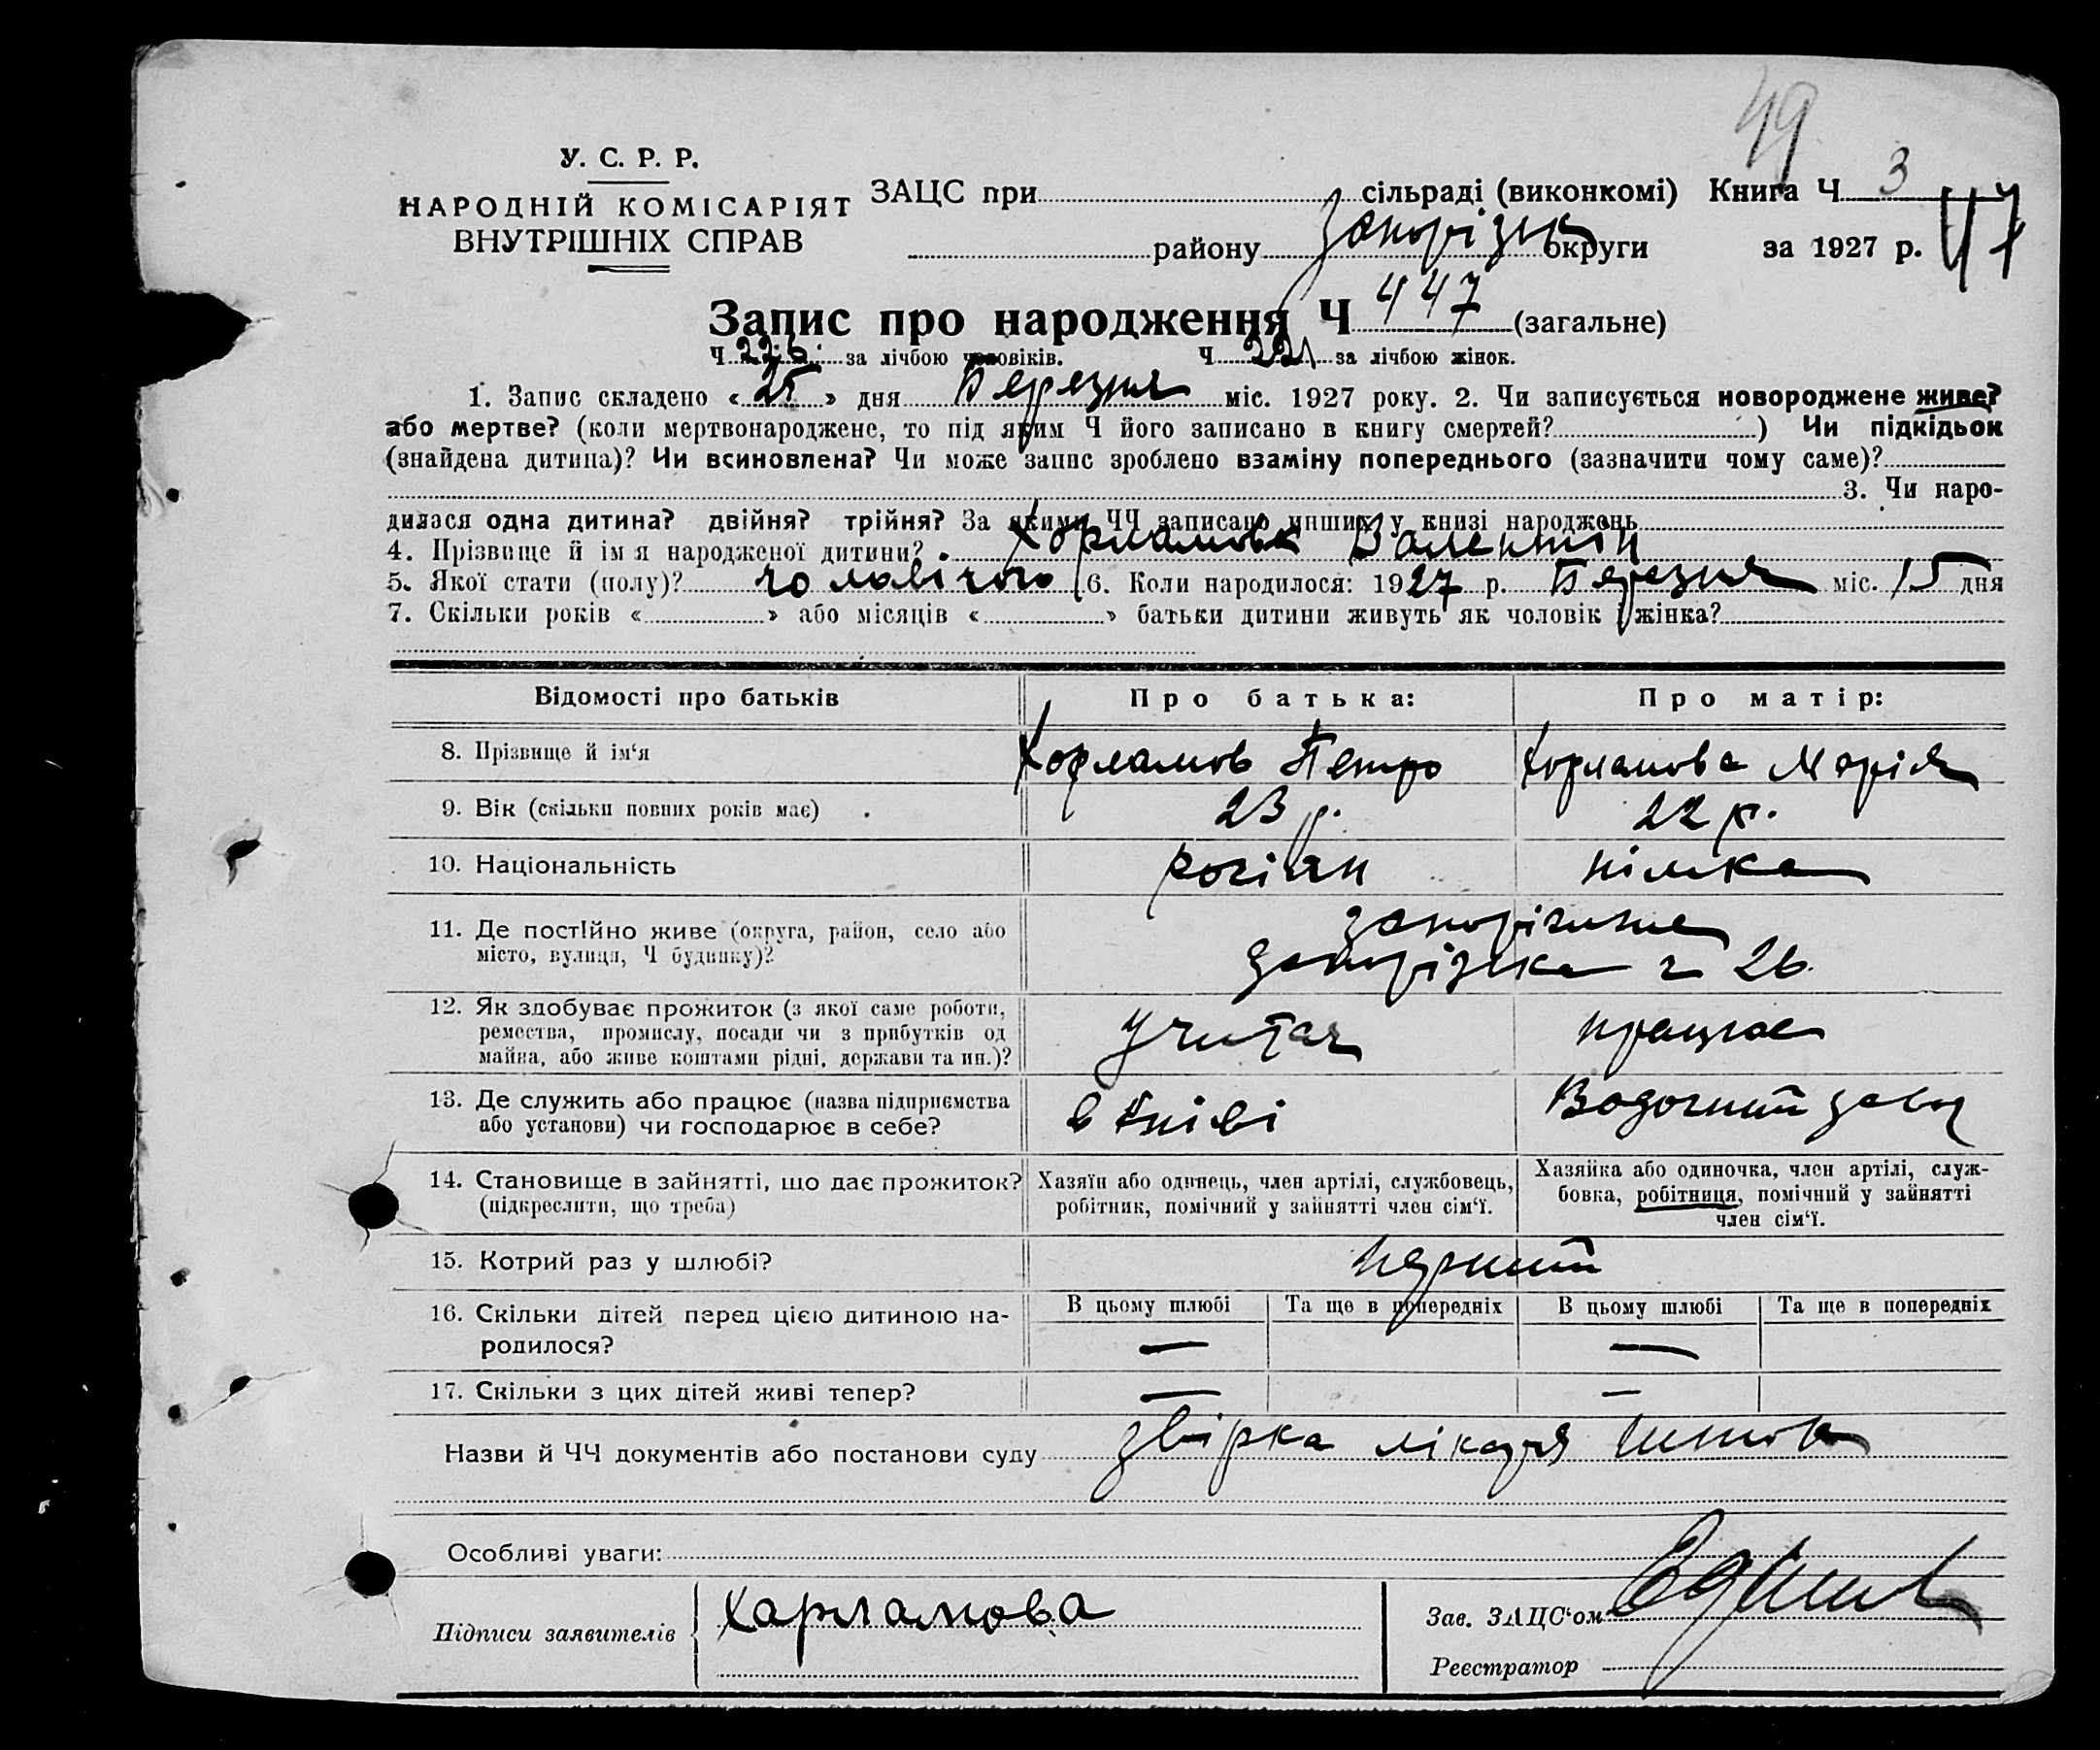 49
У. С. Р. Р.
НАРОДНІЙ КОМІСАРІЯТ
ВНУТРІШНІХ СПРАВ
ЗАЦС при сільраді (виконкомі) Книга Ч 3
району Запорізьк округи за 1927 р. 47
Запис про народження Ч 447 (загальне)
Ч 226 за лічбою чоловіків. Ч 221 за лічбою жінок.
1. Запис складено « 25 » дня Березня міс. 1927 року. 2. Чи записується новороджене живе?
або мертве? (коли мертвонароджене, то під яким Ч його записано в книгу смертей? ) Чи підкідьок
(знайдена дитина)? Чи всиновлена? Чи може запис зроблено взаміну попереднього (зазначити чому саме)?
3. Чи наро-
дилася одна дитина? двійня? трійня? За якими ЧЧ записано инших у книзі народжень
4. Прізвище й ім я народженої дитини? Хорламов Валентін
5. Якої стати (полу)? чоловічого 6. Коли народилося: 1927 р. Березня міс. 15 дня
7. Скільки років « » або місяців « » батьки дитини живуть як чоловік і жінка?
Відомості про батьків Про батька: Про матір:
8. Прізвище й ім‘я Хорламов Петро Хорламова Марія
9. Вік (скільки повних років має) 23 р. 22 р.
10. Національність росіян німка
11. Де постІйно живе (округа, район, село або
місто, вулиця, Ч будинку)?
Запоріжжє
Запорізька ч 26
12. Як здобуває прожиток (з якої саме роботи,
ремества, промислу, посади чи з прибутків од
майна, або живе коштами рідні, держави та ин.)?
працює
13. Де служить або працює (назва підприємства
або установи) чи господарює в себе?
в Водочний завод
14. Становище в зайнятті, що дає прожиток?
(підкреслити, що треба)
Хазяїн або одинець, член артілі, службовець,
робітник, помічний у зайнятті член сім‘ї.
Хазяйка або одиночка, член артілі, служ-
бовка, робітниця, помічний у зайнятті
член сім‘ї.
15. Котрий раз у шлюбі? перший
16. Скільки дітей перед цією дитиною на-
родилося?
В цьому шлюбі Та ще в попередніх В цьому шлюбі Та ще в попередніх
— —
17. Скільки з цих дітей живі тепер? — —
Назви й ЧЧ документів або постанови суду звірка лікаря
Особливі уваги:
Підписи заявителів Харламова
Зав. ЗАЦС‘ом
Реєстратор